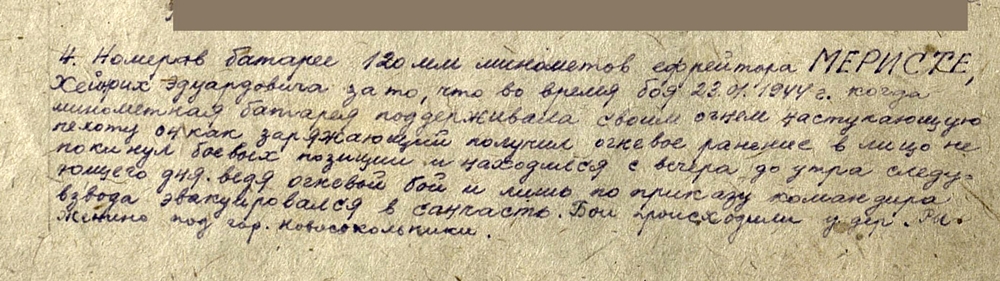 4. Номеров батареи 120 мм минометов ефрейтора МЕРИСТЕ,
Хейнрих Эдуардовича за то, что во время боя 23.01.1944 г. когда
минометная батарея поддерживала своим огнем наступающую
пехоту он как заряжающий получил огневое ранение в лицо не
покинул боевых позиций и находился с вечера до утра следу-
ющего дня ведя огневой бой и лишь по приказу командира
взвода эвакуировался в санчасть. Бои происходили у дер.
под гор. Новосокольники.